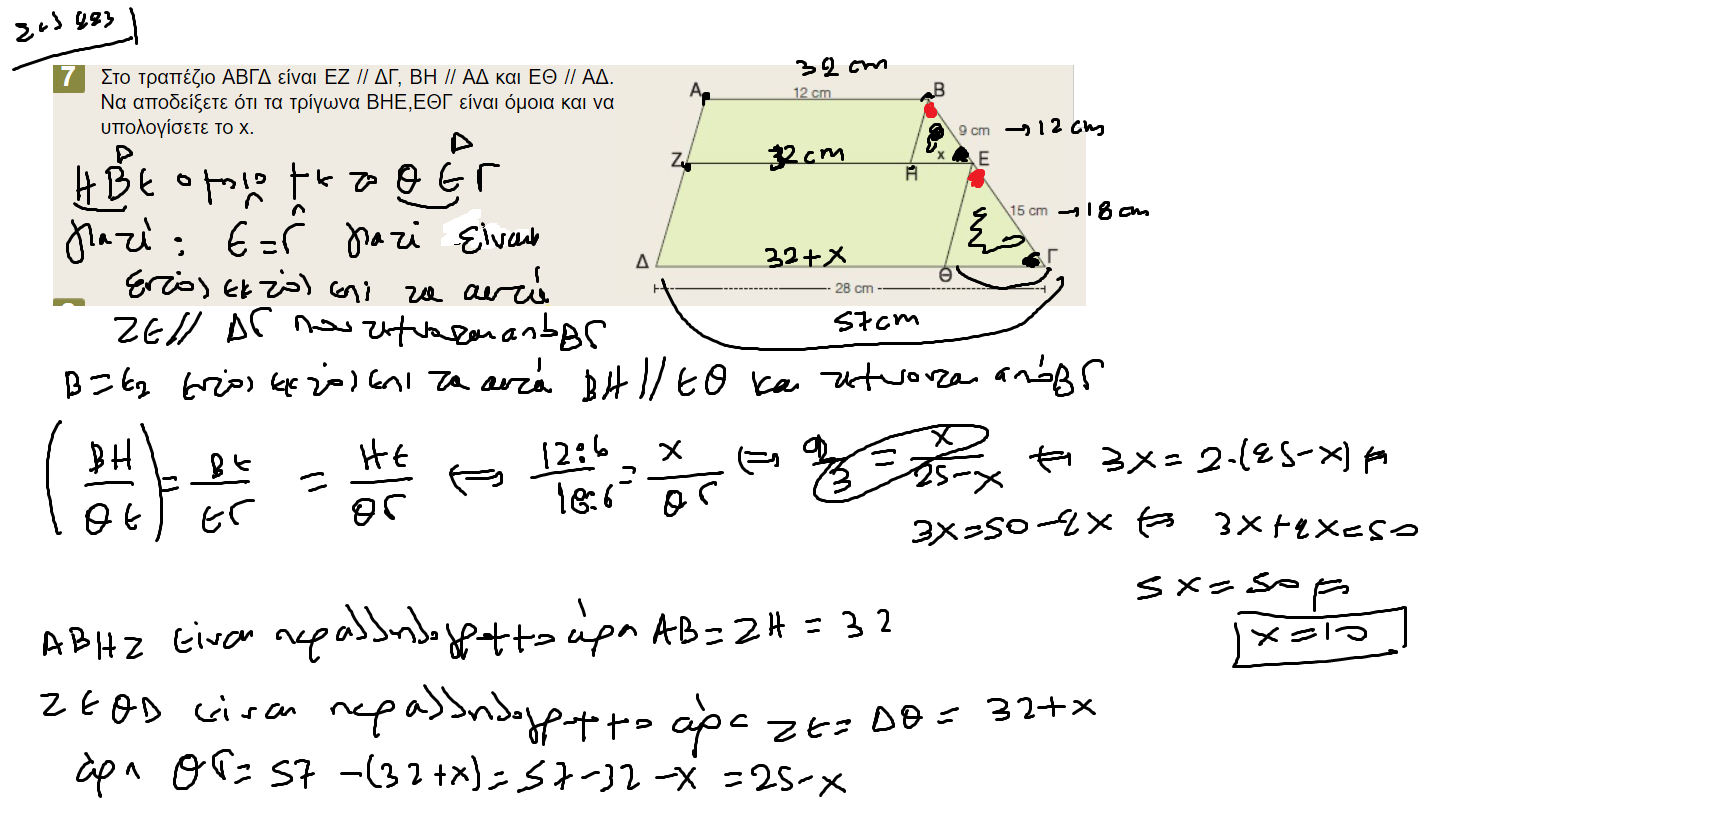 σελ 223
7 Στο τραπέζιο ΑΒΓΔ είναι ΕΖ // ΔΓ, ΒΗ // ΑΔ και ΕΘ // ΑΔ.
Να αποδείξετε ότι τα τρίγωνα ΒΗΕ,ΕΘΓ είναι όμοια και να
υπολογίσετε το x.
32 cm
Α 12 cm Β
9 cm → 12 cm
Ζ 32 cm Η x Ε
15 cm → 18 cm
Δ 32+x Θ Γ
28 cm
57 cm
ΗΒΕ όμοιο με το ΘΕΓ
γιατί: Ε = Γ γιατί είναι
εντός εκτός επί τα αυτά
ΖΕ // ΔΓ που τέμνονται από ΒΓ
Β = Ε2 εντός εκτός επί τα αυτά ΒΗ // ΕΘ και τέμνονται από ΒΓ
(ΒΗ/ΘΕ) = ΒΕ/ΕΓ = ΗΕ/ΘΓ ⇔ 12:6/18:6 = x/ΘΓ ⇔ 2/3 = x/25-x ⇔ 3x = 2·(25-x) ⇔
3x = 50 - 2x ⇔ 3x + 2x = 50
5x = 50 ⇔
x = 10
ΑΒΗΖ είναι παραλληλόγραμμο άρα ΑΒ = ΖΗ = 32
ΖΕΘΔ είναι παραλληλόγραμμο άρα ΖΕ = ΔΘ = 32+x
άρα ΘΓ = 57 - (32+x) = 57 - 32 - x = 25 - x